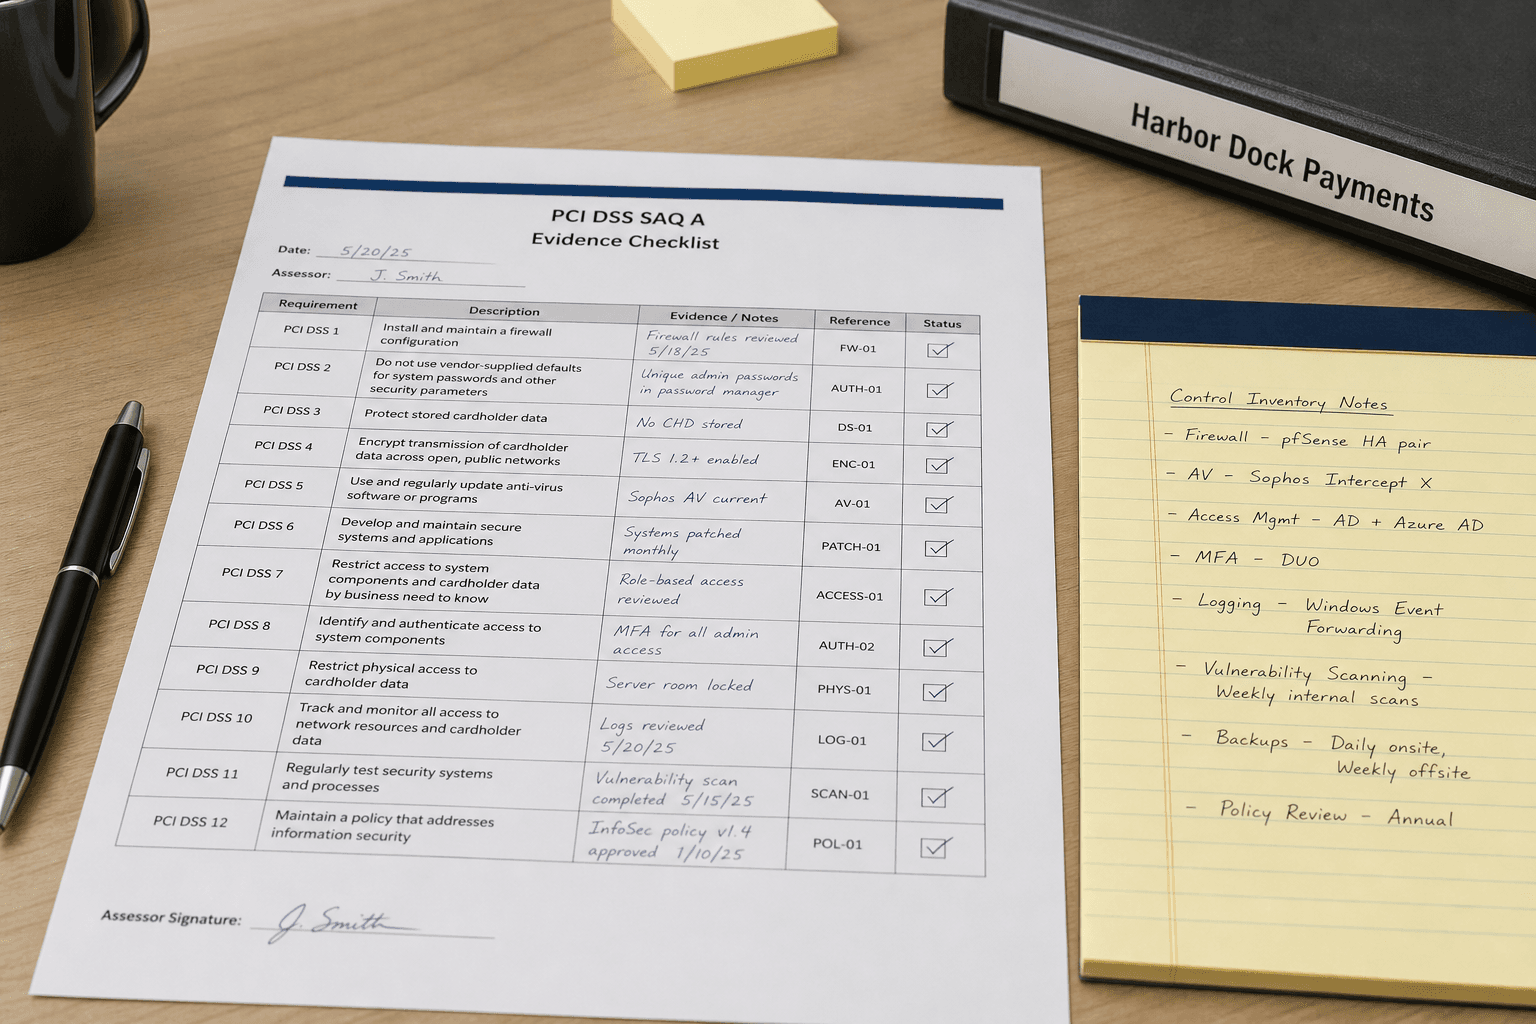 Harbor Dock Payments
PCI DSS SAQ A
Evidence Checklist
Date: 5/20/25
Assessor: J. Smith
Requirement Description Evidence / Notes Reference Status
PCI DSS 1 Install and maintain a firewall
configuration
Firewall rules reviewed
5/18/25
FW-01
PCI DSS 2 Do not use vendor-supplied defaults
for system passwords and other
security parameters
Unique admin passwords
in password manager
AUTH-01
PCI DSS 3 Protect stored cardholder data
No CHD stored
DS-01
PCI DSS 4 Encrypt transmission of cardholder
data across open, public networks
TLS 1.2+ enabled
ENC-01
PCI DSS 5 Use and regularly update anti-virus
software or programs
Sophos AV current
AV-01
PCI DSS 6 Develop and maintain secure
systems and applications
Systems patched
monthly
PATCH-01
PCI DSS 7 Restrict access to system
components and cardholder data
by business need to know
Role-based access
reviewed
ACCESS-01
PCI DSS 8 Identify and authenticate access to
system components
MFA for all admin
access
AUTH-02
PCI DSS 9 Restrict physical access to
cardholder data
Server room locked
PHYS-01
PCI DSS 10 Track and monitor all access to
network resources and cardholder
data
Logs reviewed
5/20/25
LOG-01
PCI DSS 11 Regularly test security systems
and processes
Vulnerability scan
completed 5/15/25
SCAN-01
PCI DSS 12 Maintain a policy that addresses
information security
InfoSec policy v1.4
approved 1/10/25
POL-01
Assessor Signature: J. Smith
Control Inventory Notes
- Firewall - pfSense HA pair
- AV - Sophos Intercept X
- Access Mgmt - AD + Azure AD
- MFA - DUO
- Logging - Windows Event
Forwarding
- Vulnerability Scanning -
Weekly internal scans
- Backups - Daily onsite,
Weekly offsite
- Policy Review - Annual